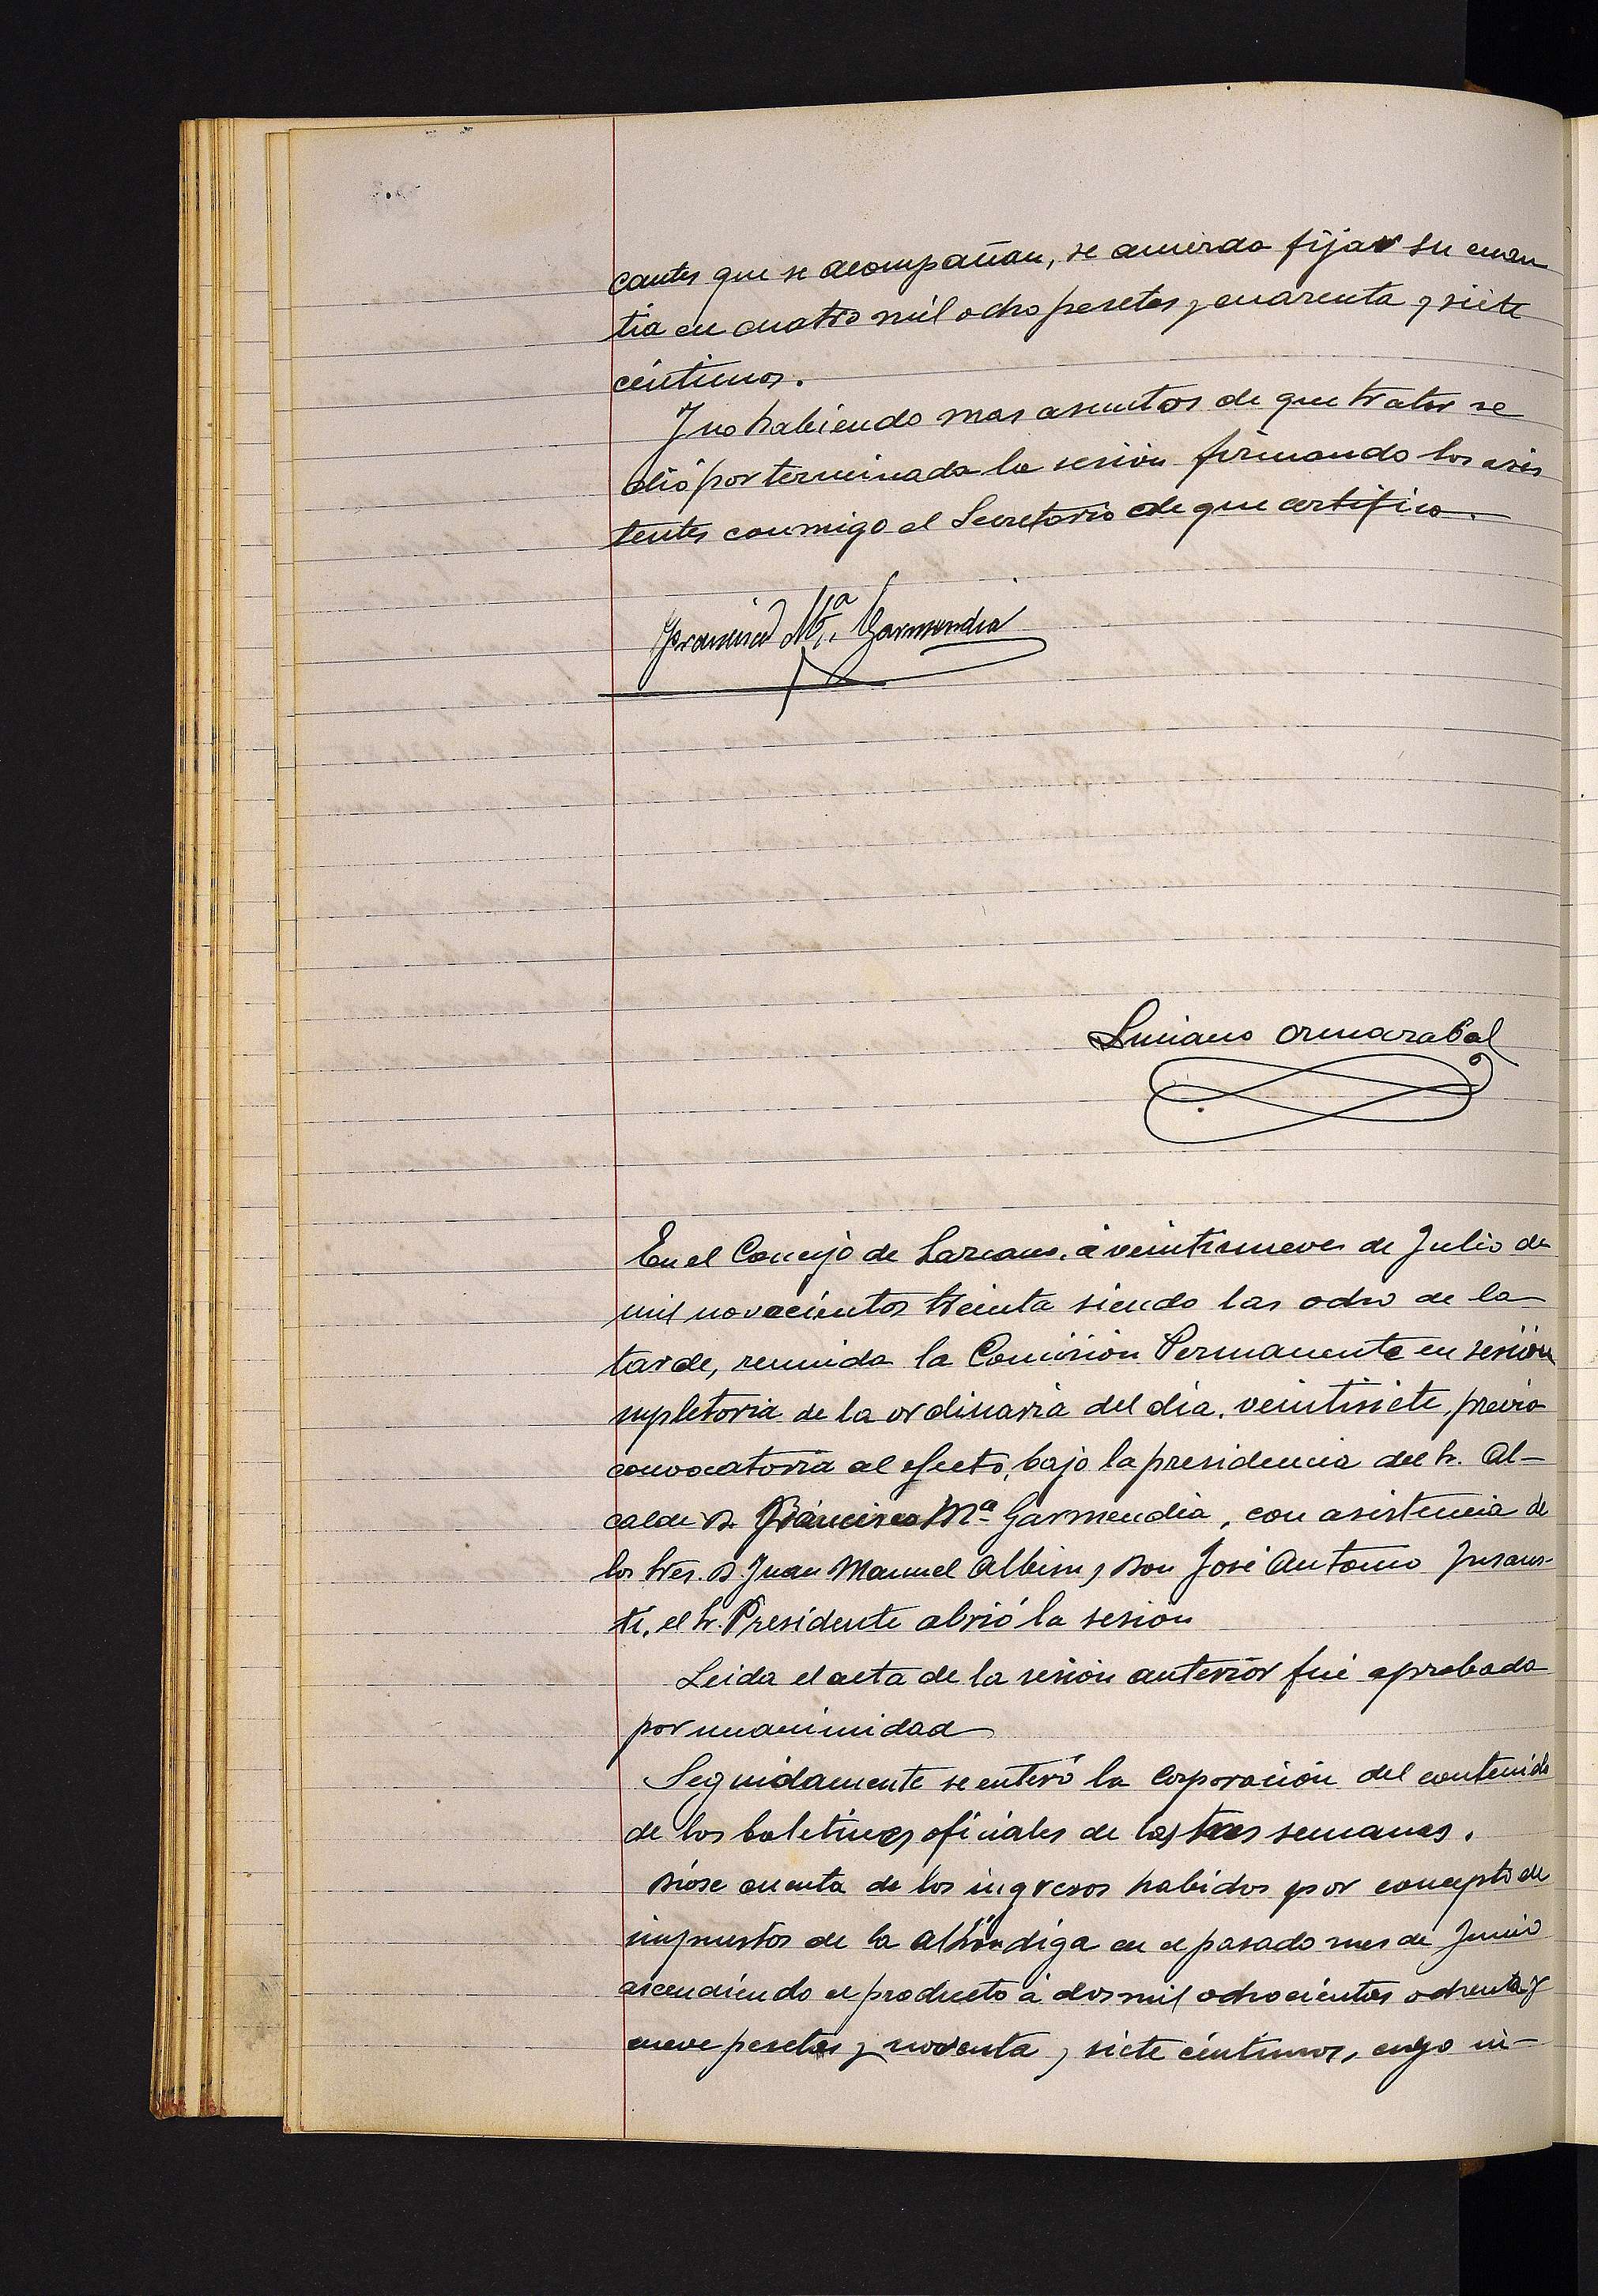 cantes que se acompañan, se acuerda fijar su cuan
tia en cuatro mil ocho pesetas y cuarenta y siete
céntimos.
Y no habiendo mas asuntos de que tratar se
dió por terminada la sesión firmando los asis
tentes conmigo el Secretario de que certifico.
Francisco Mª. Garmendia
Luciano Ormazabal
En el Concejo de Lazcano, á veintinueve de Julio de
mil novecientos treinta siendo las ocho de la
tarde, reunida la Comisión Permanente en sesión
supletoria de la ordinaria del dia veintisiete, previa
convocatoria al efecto, bajo la presidencia del Sr. Al-
calde D. Francisco Mª Garmendia, con asistencia de
los Sres. D. Juan Manuel Albisu y Don José Antonio Insaus-
ti, el Sr. Presidente abrió la sesión
Leida el acta de la sesión anterior fué aprobada
por unanimidad
Seguidamente se enteró la Corporación del contenido
de los boletines oficiales de las tres semanas.
Dióse cuenta de los ingresos habidos por concepto de
impuestos de la alhóndiga en el pasado mes de Junio
ascendiendo el producto á dos mil ochocientas ochenta y
nueve pesetas y noventa y siete céntimos, cuyo in-